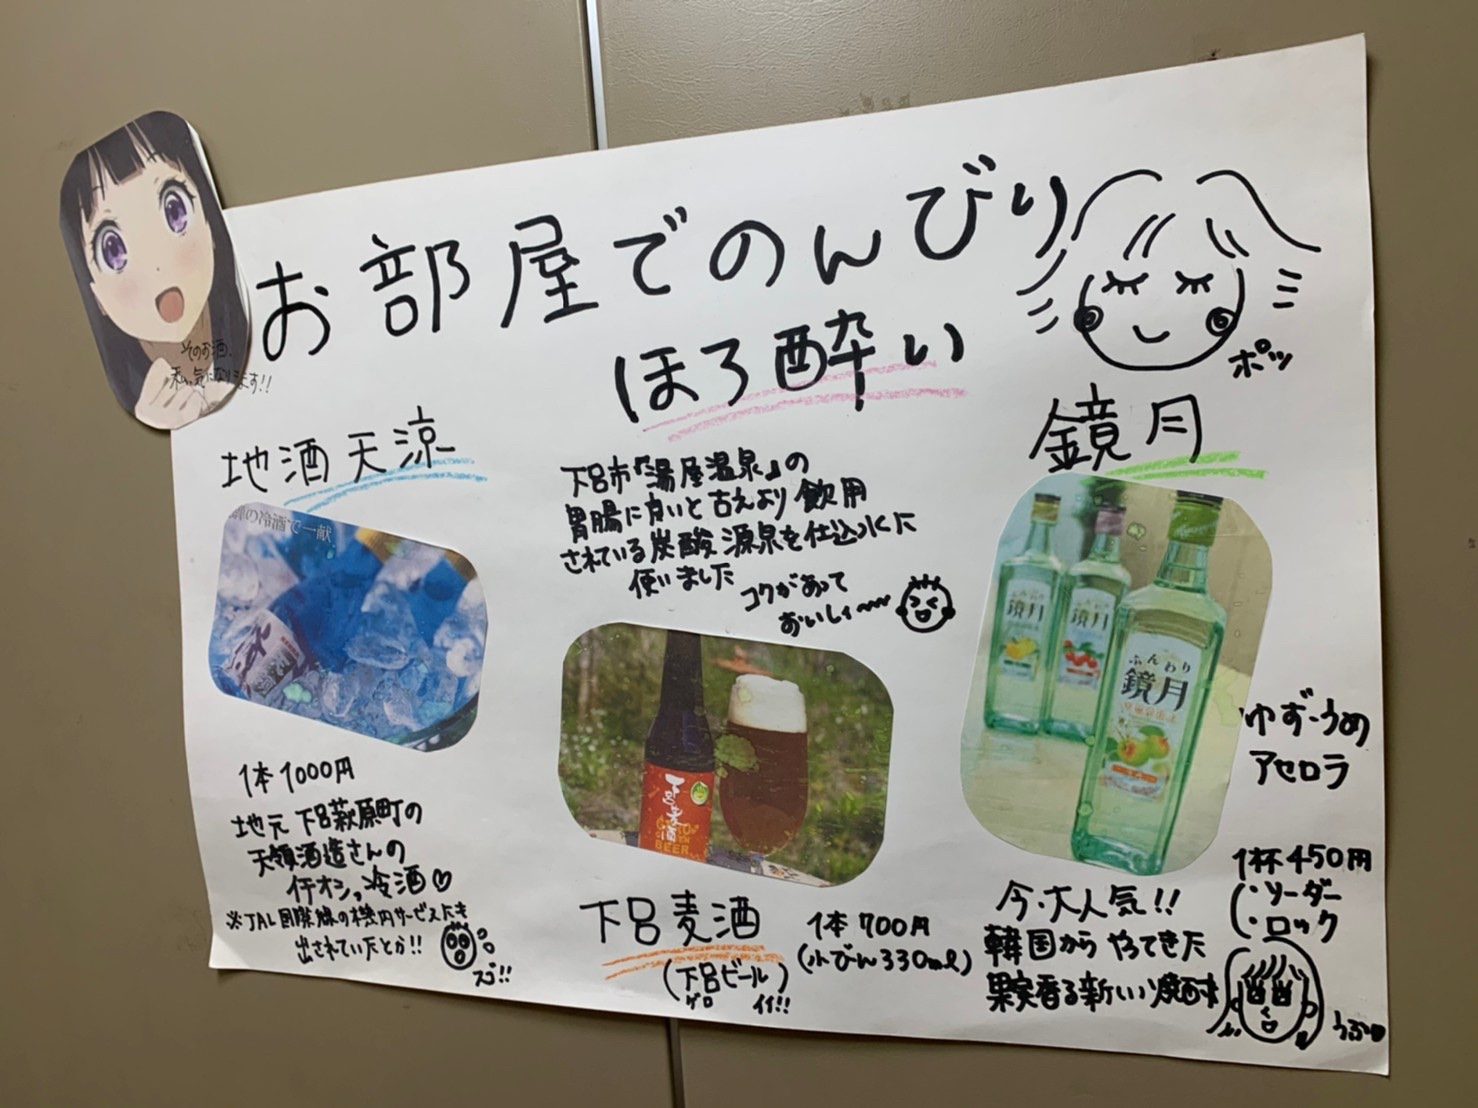 お部屋でのんびり
ほろ酔い
ポッ
そのお酒、
私、気になります!!
地酒天涼
の冷酒で一献
1本1000円
地元下呂萩原町の
天領酒造さんの
イチオシ冷酒♡
※JAL国際線の機内サービスにも
出されていたとか!!
スゴ!!
下呂市『湯屋温泉』の
胃腸に良いと古えより飲用
されている炭酸源泉を仕込水に
使いました
コクがあって
おいしィ〜〜
下呂麦酒
BEER
下呂麦酒
(下呂ビール)
ゲロ
1本700円
(小びん330ml)
鏡月
ふんわり
鏡月
ゆず・うめ
アセロラ
1杯450円
・ソーダー
・ロック
今・大人気!!
韓国からやってきた
果実香る新しい焼酎